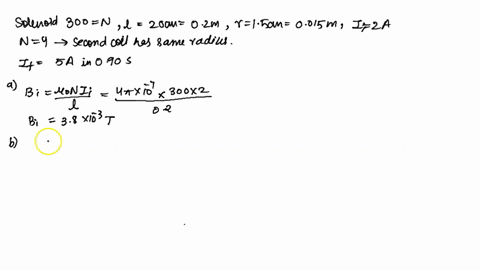 Solenoid 300=N, l = 20cm = 0.2m, r=1.5cm = 0.015m, Ii=2A
N=4 → Second coil has same radius.
If = 5A in 0.90 s
a) Bi = μ0NIi / l = 4π×10^-7 × 300×2 / 0.2
Bi = 3.8×10^-3 T
b)